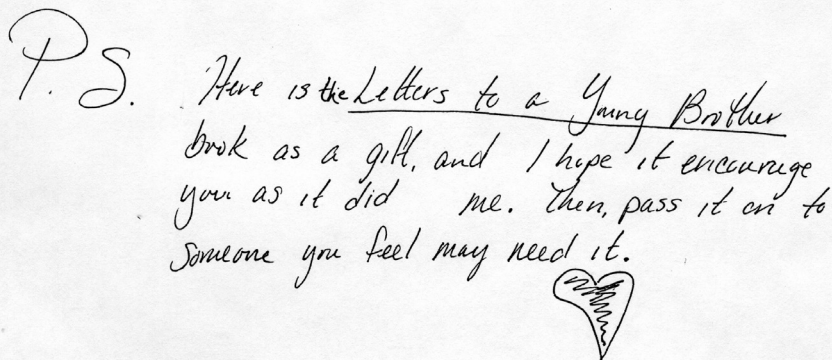 P.S. Here is the Letters to a Young Brother
book as a gift, and I hope it encourage
you as it did me. Then, pass it on to
someone you feel may need it.